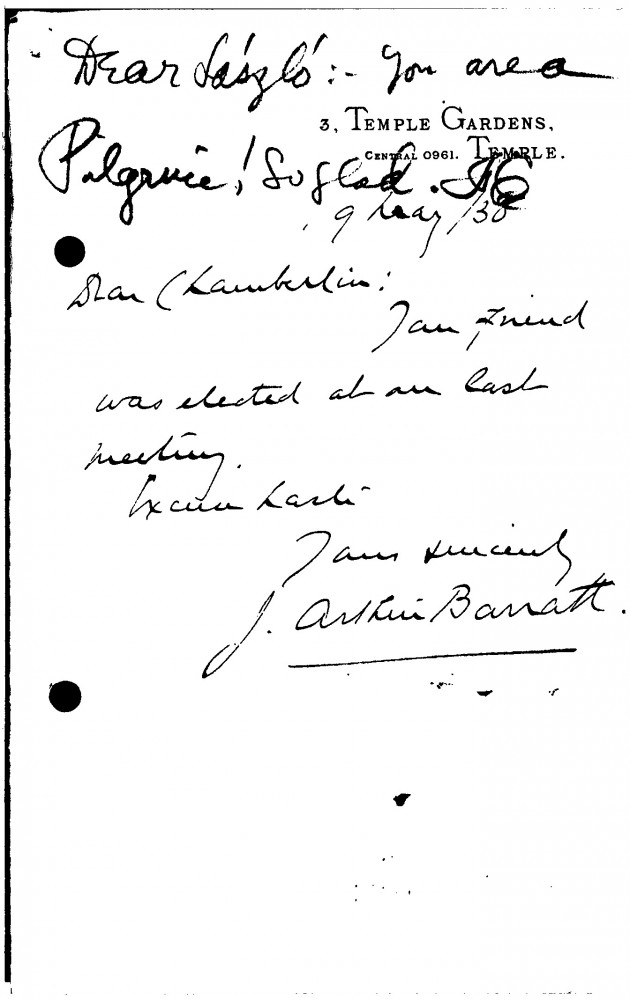 Dear László:- You are a
3, TEMPLE GARDENS,
CENTRAL 0961. TEMPLE.
Pilgrim! So glad.
9 May /30
Dear Chamberlin:
Your friend
was elected at our last
meeting.
Excuse haste
Yours sincerely
J. Arthur Barratt.